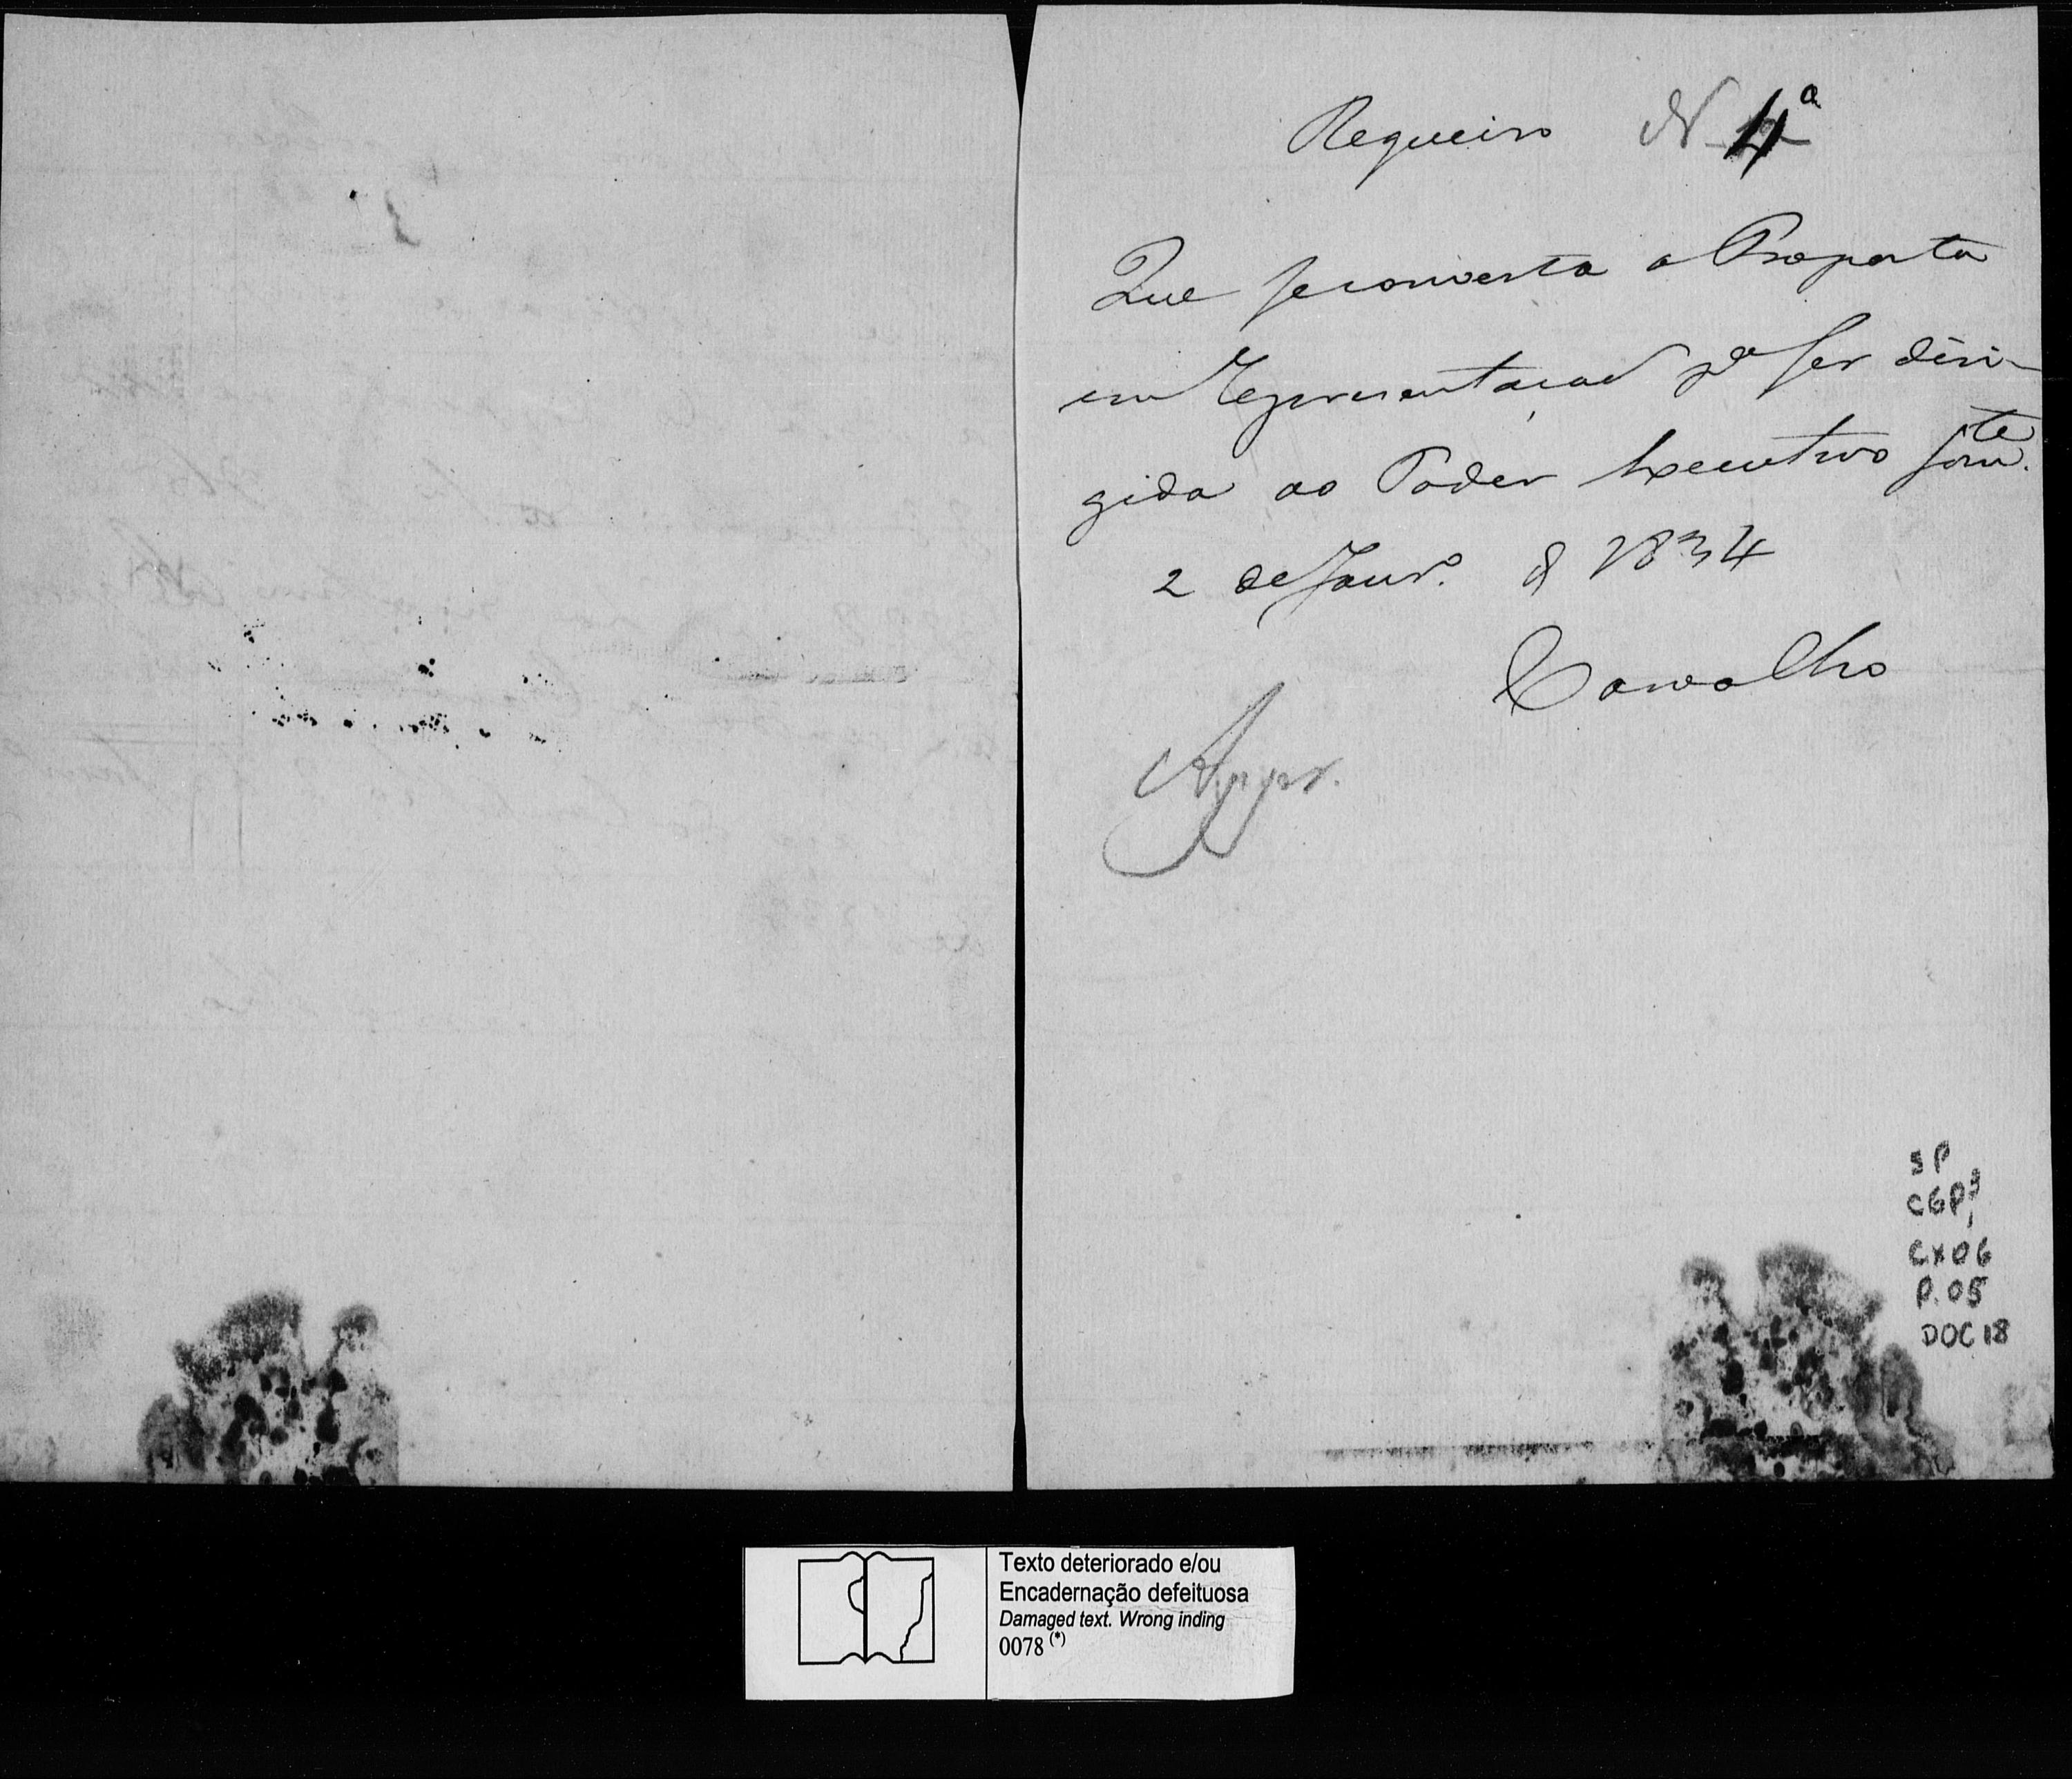 Requeiro N 4ª
Que se converta a Proposta
em Representacaõ pª ser diri-
gida ao Poder Executivo som.te
2 de Janrº. d 1834
Carvalho
Appr.
SP
CGP
CX06
P. 05
DOC 18
Texto deteriorado e/ou
Encadernação defeituosa
Damaged text. Wrong inding
0078 (*)